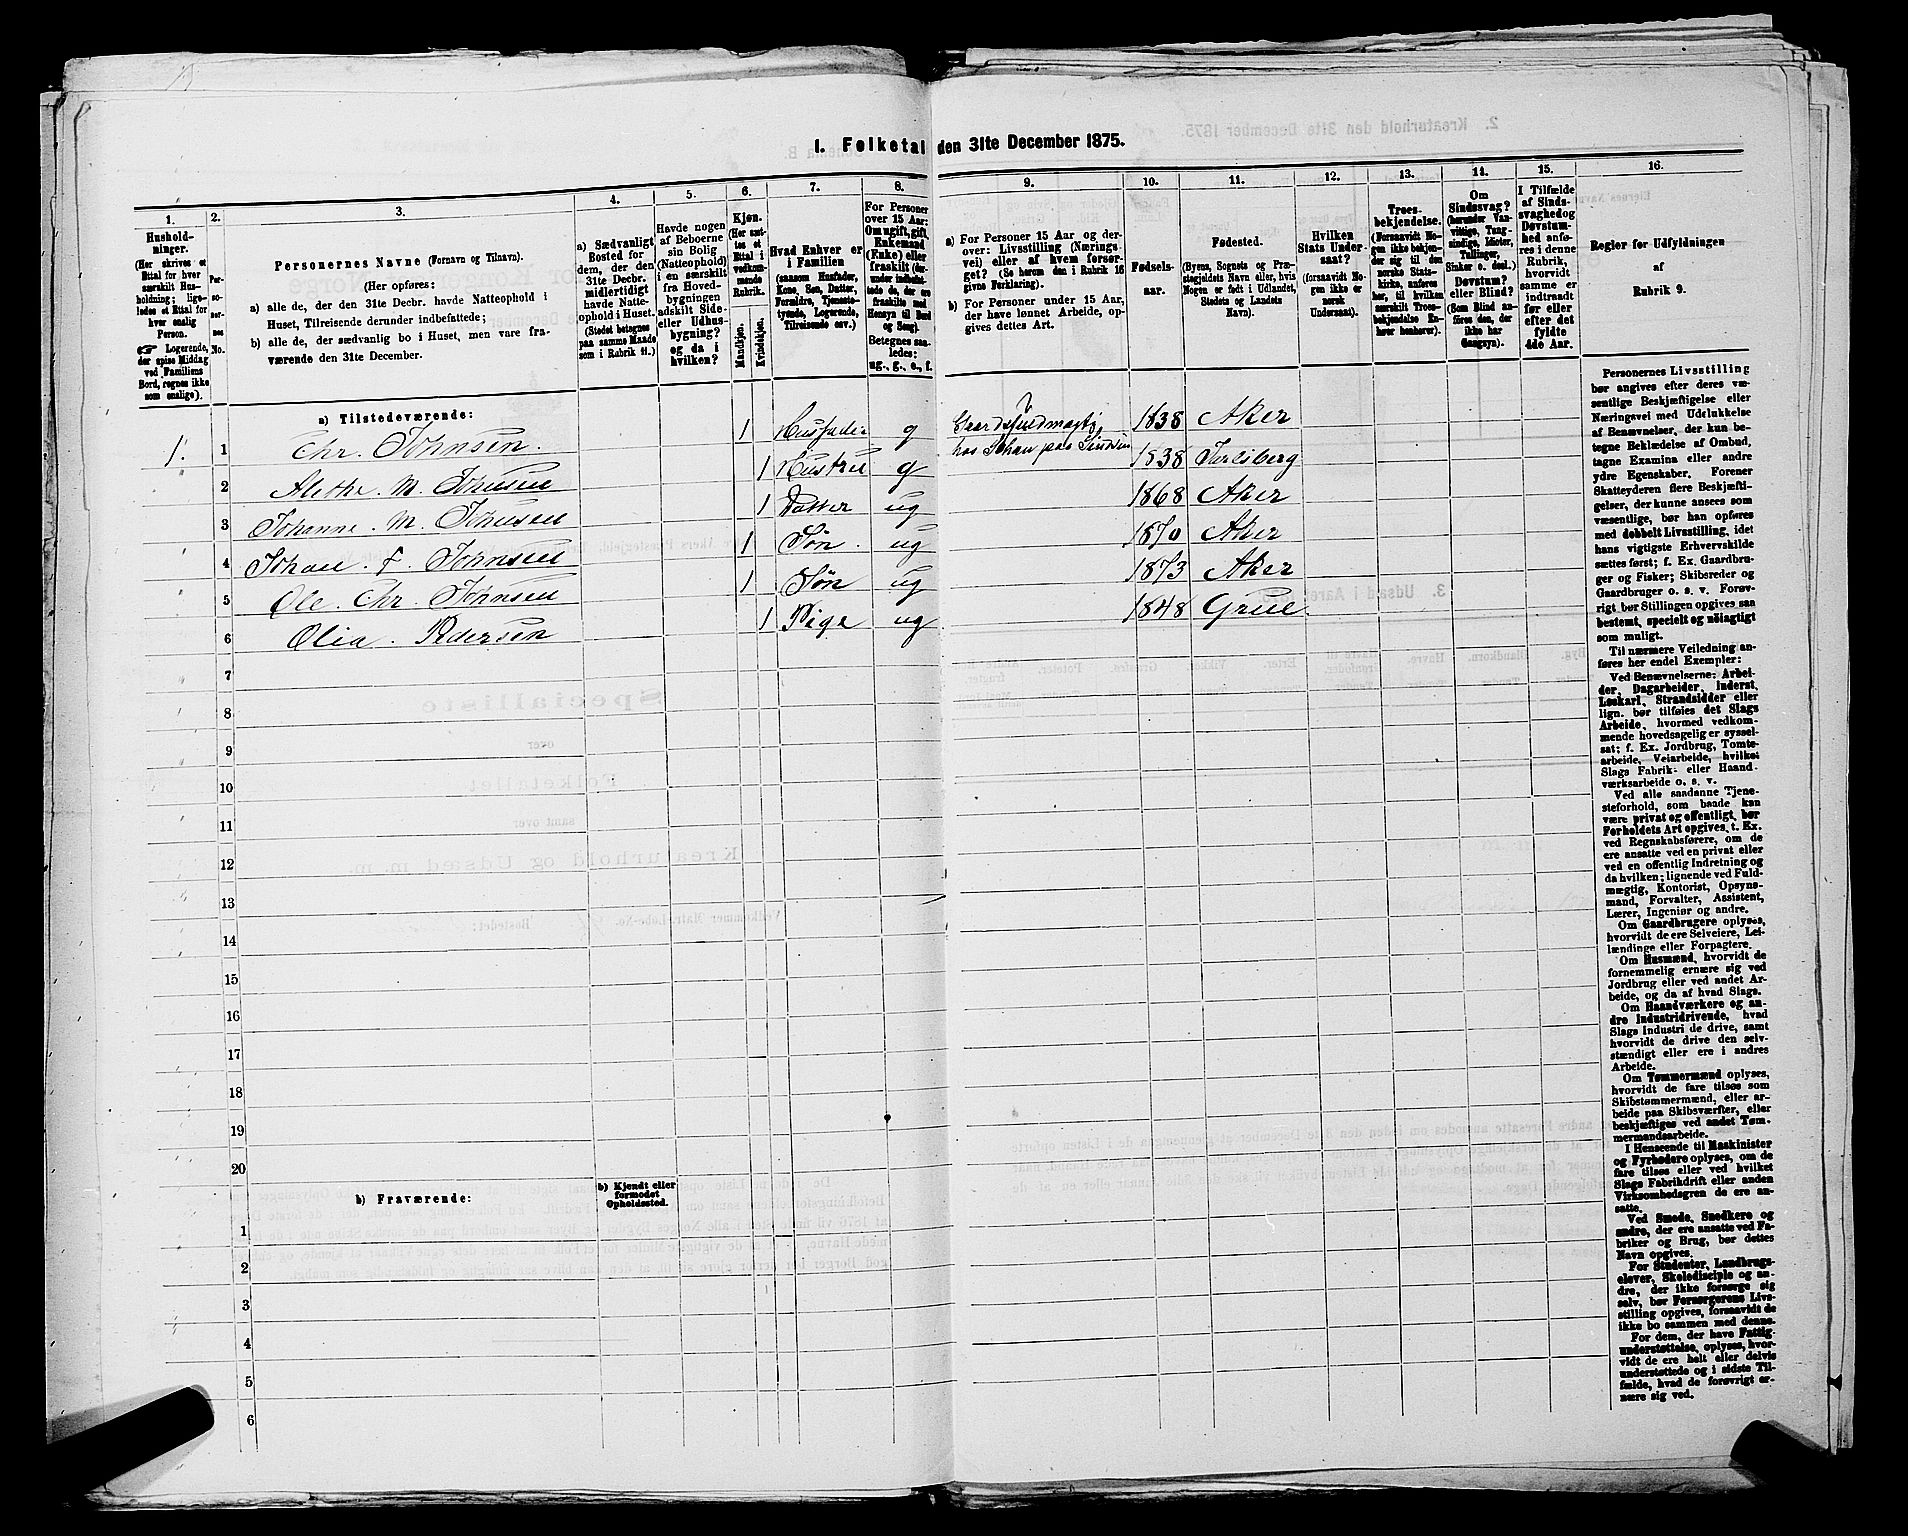 I. Folketal den 31te December 1875.
1.
2.
3.
4.
5.
6.
7.
8.
9.
10.
11.
12.
13.
14.
15.
16.
Hushold-
ninger.
(Her skrives et
Ettal for hver
særskilt Hus-
holdning; lige-
ledes et Ettal for
hver enslig
Person.
☞ Logerende,
der spise Middag
ved Familiens
Bord, regnes ikke
som enslige).
Per-
so-
ner-
nes
No.
Personernes Navne (Fornavn og Tilnavn).
(Her opføres:
a) alle de, der den 31te Decbr. havde Natteophold i
Huset, Tilreisende derunder indbefattede;
b) alle de, der sædvanlig bo i Huset, men vare fra-
værende den 31te December.
a) Sædvanligt
Bosted for
dem, der den
31te Decbr.
midlertidigt
havde Natte-
ophold i Huset.
(Stedet betegnes
paa samme Maade
som i Rubrik 11.)
Havde nogen
af Beboerne
sin Bolig
(Natteophold)
i en særskilt
fra Hoved-
bygningen
adskilt Side-
eller Udhus-
bygning?
og da i
hvilken?
Kjøn.
(Her sæt-
tes et
Ettal i
vedkom-
mende
Rubrik.
Mandkjøn.
Kvindekjøn.
Hvad Enhver er
i Familien
(saasom Husfader,
Kone, Søn, Datter,
Forældre, Tjeneste-
tyende, Logerende,
Tilreisende osv.)
For Personer
over 15 Aar:
Om ugift, gift
Enkemand
(Enke) eller
fraskilt (der-
under indbefat-
tede de, der ere
fraskilte med
Hensyn til Bord
og Seng).
Betegnes saa-
ledes:
ug., g., e., f.
a) For Personer 15 Aar og der-
over: Livsstilling (Nærings-
vei) eller af hvem forsør-
get? (Se herom den i Rubrik 16
givne Forklaring).
b) For Personer under 15 Aar,
der have lønnet Arbeide, op-
gives dettes Art.
Fødsels-
aar.
Fødested.
(Byens, Sognets og Præ-
stegjeldets Navn eller, hvis
Nogen er født i Udlandet,
Stedets og Landets
Navn).
Hvilken
Stats Under-
saat?
(forsaavidt No-
gen ikke er
norsk
Undersaat).
Troes-
bekjendelse.
(Forsaavidt No-
gen ikke bekjen-
der sig til den
norske Stats-
kirke, anføres
her, til hvilken
særskilt Troes-
bekjendelse En-
hver henhører).
Om
Sindssvag?
(herunder Van-
vittige, Tung-
sindige, Idioter,
Tullinger,
Sinker o. desl.)
Døvstum?
eller Blind?
(Som Blind an-
føres den, der
ikke har
Gangsyn).
I Tilfælde
af Sinds-
svaghed og
Døvstum-
hed anfø-
res i denne
Rubrik,
hvorvidt
samme er
indtraadt
før eller
efter det
fyldte
4de Aar.
Regler for Udfyldningen
af
Rubrik 9.
a) Tilstedeværende:
1. 1 Chr. Johnsen. 1 Husfader g 1838 Aker
" 2 Alethe. M. Johnsen 1 Hustru g 1838 Jarlsberg
" 3 Johanne. M. Johnsen 1 Datter ug 1868 Aker
" 4 Johan. F. Johnsen 1 Søn. ug 1870 Aker
" 5 Ole. Chr. Johnsen 1 Søn ug 1873 Aker
" 6 Olia. Pedersen 1 Pige ug 1848 Grue
7
8
9
10
11
12
13
14
15
16
17
18
19
20
b) Fraværende:
b) Kjendt eller
formodet
Opholdssted.
1
2
3
4
5
6
Personernes Livsstilling
bør angives efter deres væ-
sentlige Beskjæftigelse eller
Næringsvei med Udelukkelse
af Benævnelser, der kun be-
tegne Beklædelse af Ombud,
tagne Examina eller andre
ydre Egenskaber. Forener
Skatteyderen flere Beskjæfti-
gelser, der kunne ansees som
væsentlige, bør han opføres
med dobbelt Livsstilling, idet
hans vigtigste Erhvervskilde
sættes først; f. Ex. Gaardbru-
ger og Fisker; Skibsreder og
Gaardbruger o. s. v. Forøv-
rigt bør Stillingen opgives saa
bestemt, specielt og nøiagtigt
som muligt.
Til nærmere Veiledning an-
føres her endel Exempler:
Ved Benævnelserne: Arbei-
der, Dagarbeider, Inderst,
Løskarl, Strandsidder eller
lign. bør tilføies det Slags
Arbeide, hvormed vedkom-
mende hovedsagelig er syssel-
sat; f. Ex. Jordbrug, Tomte-
arbeide, Veiarbeide, hvilket
Slags Fabrik- eller Haand-
værksarbeide o. s. v.
Ved alle saadanne Tjene-
steforhold, som baade kan
være privat og offentligt, bør
Forholdets Art opgives, t. Ex.
ved Regnskabsførere, om de
ere ansatte ved en privat eller
ved en offentlig Indretning og
da hvilken; lignende ved Fuld-
mægtig, Kontorist, Opsyns-
mand, Forvalter, Assistent,
Lærer, Ingeniør og andre.
Om Gaardbrugere oplyses,
hvorvidt de ere Selveiere, Lei-
lændinge eller Forpagtere.
Om Husmænd, hvorvidt de
fornemmelig ernære sig ved
Jordbrug eller ved andet Ar-
beide, og da af hvad Slags.
Om Haandværkere og an-
dre Industridrivende, hvad
Slags Industri de drive, samt
hvorvidt de drive den selv-
stændigt eller ere i andres
Arbeide.
Om Tømmermænd oplyses,
hvorvidt de fare tilsøs som
Skibstømmermænd, eller ar-
beide paa Skibsværfter, eller
beskjæftiges ved andet Tøm-
mermandsarbeide.
I Henseende til Maskinister
og Fyrbødere oplyses, om de
fare tilsøs eller ved hvilket
Slags Fabrikdrift eller anden
Virksomhedsgren de ere an-
satte.
Ved Smede, Snedkere og
andre, der ere ansatte ved Fa-
briker og Brug, bør dettes
Navn opgives.
For Studenter, Landbrugs-
elever, Skoledisciple og an-
dre, der ikke forsørge sig
selv, bør Forsørgerens Livs-
stilling opgives, forsaavidt de
ikke bo sammen med denne.
For dem, der have Fattig-
understøttelse, oplyses, hvor-
vidt de ere helt eller delvis
understøttede og i sidste Til-
fælde, hvad de forøvrigt er-
nære sig ved.